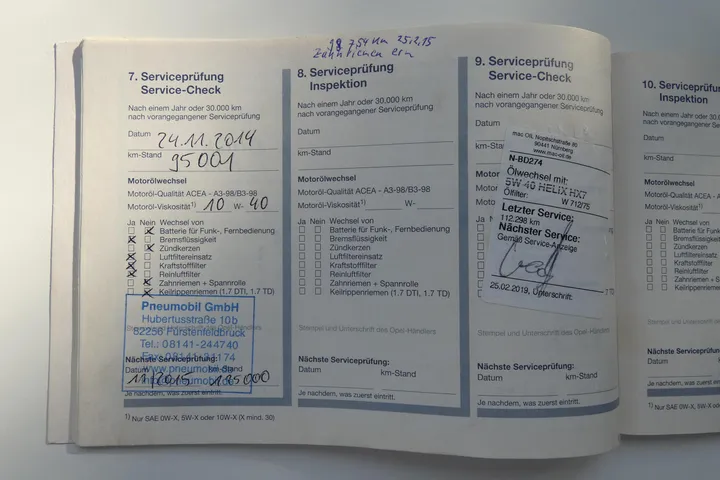 25.2.15
7. Serviceprüfung
Service-Check
Nach einem Jahr oder 30.000 km
nach vorangegangener Serviceprüfung
Datum 24.11.2014
km-Stand 95001
Motorölwechsel
Motoröl-Qualität ACEA - A3-98/B3-98
Motoröl-Viskosität¹⁾ 10 W- 40
Ja Nein Wechsel von
Batterie für Funk-, Fernbedienung
Bremsflüssigkeit
Zündkerzen
Luftfiltereinsatz
Kraftstofffilter
Reinluftfilter
Zahnriemen + Spannrolle
Keilrippenriemen (1.7 DTI, 1.7 TD)
Pneumobil GmbH
Hubertusstraße 10b
82256 Fürstenfeldbruck
Tel.: 08141-244740
Nächste Serviceprüfung:
Datum km-Stand
11/2015 125000
Je nachdem, was zuerst eintritt.
1) Nur SAE 0W-X, 5W-X oder 10W-X (X mind. 30)
8. Serviceprüfung
Inspektion
Nach einem Jahr oder 30.000 km
nach vorangegangener Serviceprüfung
Datum
km-Stand
Motorölwechsel
Motoröl-Qualität ACEA - A3-98/B3-98
Motoröl-Viskosität¹⁾ W-
Ja Nein Wechsel von
Batterie für Funk-, Fernbedienung
Bremsflüssigkeit
Zündkerzen
Luftfiltereinsatz
Kraftstofffilter
Reinluftfilter
Zahnriemen + Spannrolle
Keilrippenriemen (1.7 DTI, 1.7 TD)
Stempel und Unterschrift des Opel-Händlers
Nächste Serviceprüfung:
Datum km-Stand
Je nachdem, was zuerst eintritt.
9. Serviceprüfung
Service-Check
Nach einem Jahr oder 30.000 km
nach vorangegangener Serviceprüfung
Datum
km-St
Motor
Motor
Motor
Ja
mac OIL Nopitschstraße 90
90441 Nürnberg
www.mac-oil.de
N-BD274
Ölwechsel mit:
5W 40 HELIX HX7
Ölfilter: W 712/75
Letzter Service:
112.298 km
Nächster Service:
Gemäß Service-Anzeige
25.02.2019, Unterschrift:
Stempel und Unterschrift des Opel-Händlers
Nächste Serviceprüfung:
Datum km-Stand
Je nachdem, was zuerst eintritt.
10. Serviceprüfung
Inspektion
Nach einem Jahr
nach vorangegan
Datum
km-Stand
Motorölwechsel
Motoröl-Qualität
Motoröl-Viskosi
Ja Nein Wech
Nächste Ser
Datum
Je nachdem,
1) Nur SAE 0W